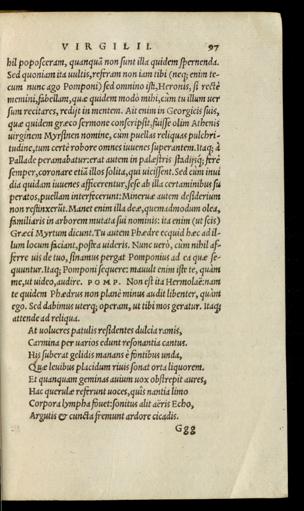 VIRGILII. 97
hil poposceram, quanquā non sunt illa quidem spernenda.
Sed quoniam ita uultis, referam non iam tibi (neq; enim te-
cum nunc ago Pomponi) sed omnino isti, Heronis, si rectè
memini, fabellam, quæ quidem modò mihi, cùm tu illum uer
sum recitares, redijt in mentem. Ait enim in Georgicis suis,
quæ quidem græco sermone conscripsit, fuisse olim Athenis
uirginem Myrsinen nomine, cùm puellas reliquas pulchri-
tudine, tum certè robore omnes iuuenes superantem. Itaq; à
Pallade peramabatur: erat autem in palæstris stadijsq; ferè
semper, coronare etiā illos solita, qui uicissent. Sed cùm inui
dia quidam iuuenes afficerentur, sese ab illa certaminibus su
peratos, puellam interfecerunt: Mineruæ autem desiderium
non restinxerūt. Manet enim illa deæ, quemadmodum olea,
familiaris in arborem mutata sui nominis: ita enim (ut scis)
Græci Myrtum dicunt. Tu autem Phædre ecquid hæc ad il-
lum locum faciant, postea uideris. Nunc uerò, cùm nihil af-
ferre uis de tuo, sinamus pergat Pomponius ad ea quæ se-
quuntur. Itaq; Pomponi sequere: mauult enim iste te, quàm
me, ut uideo, audire. POMP. Non est ita Hermolaë: nam
te quidem Phædrus non planè minus audit libenter, quàm
ego. Sed dabimus uterq; operam, ut tibi mos geratur. Itaq;
attende ad reliqua.
At uolucres patulis residentes dulcia ramis,
Carmina per uarios edunt resonantia cantus.
His suberat gelidis manans è fontibus unda,
Quæ leuibus placidum riuis sonat orta liquorem.
Et quanquam geminas auium uox obstrepit aures,
Hac querulæ referunt uoces, quîs nantia limo
Corpora lympha fouet: sonitus alit aëris Echo,
Argutis & cuncta fremunt ardore cicadis.
Ggg